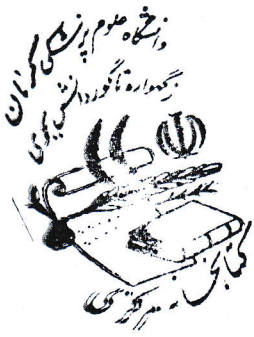 دانشگاه علوم پزشکی کرمان
ز گهواره تا گور دانش بجوی
کتابخانه مرکزی